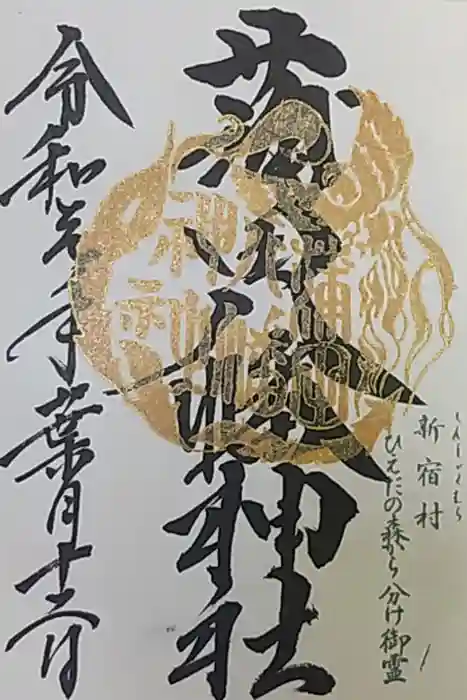 しんしゅくむら
新宿村
ひえだの森から分け御霊
蒲田八幡神社
令和元年葉月十日